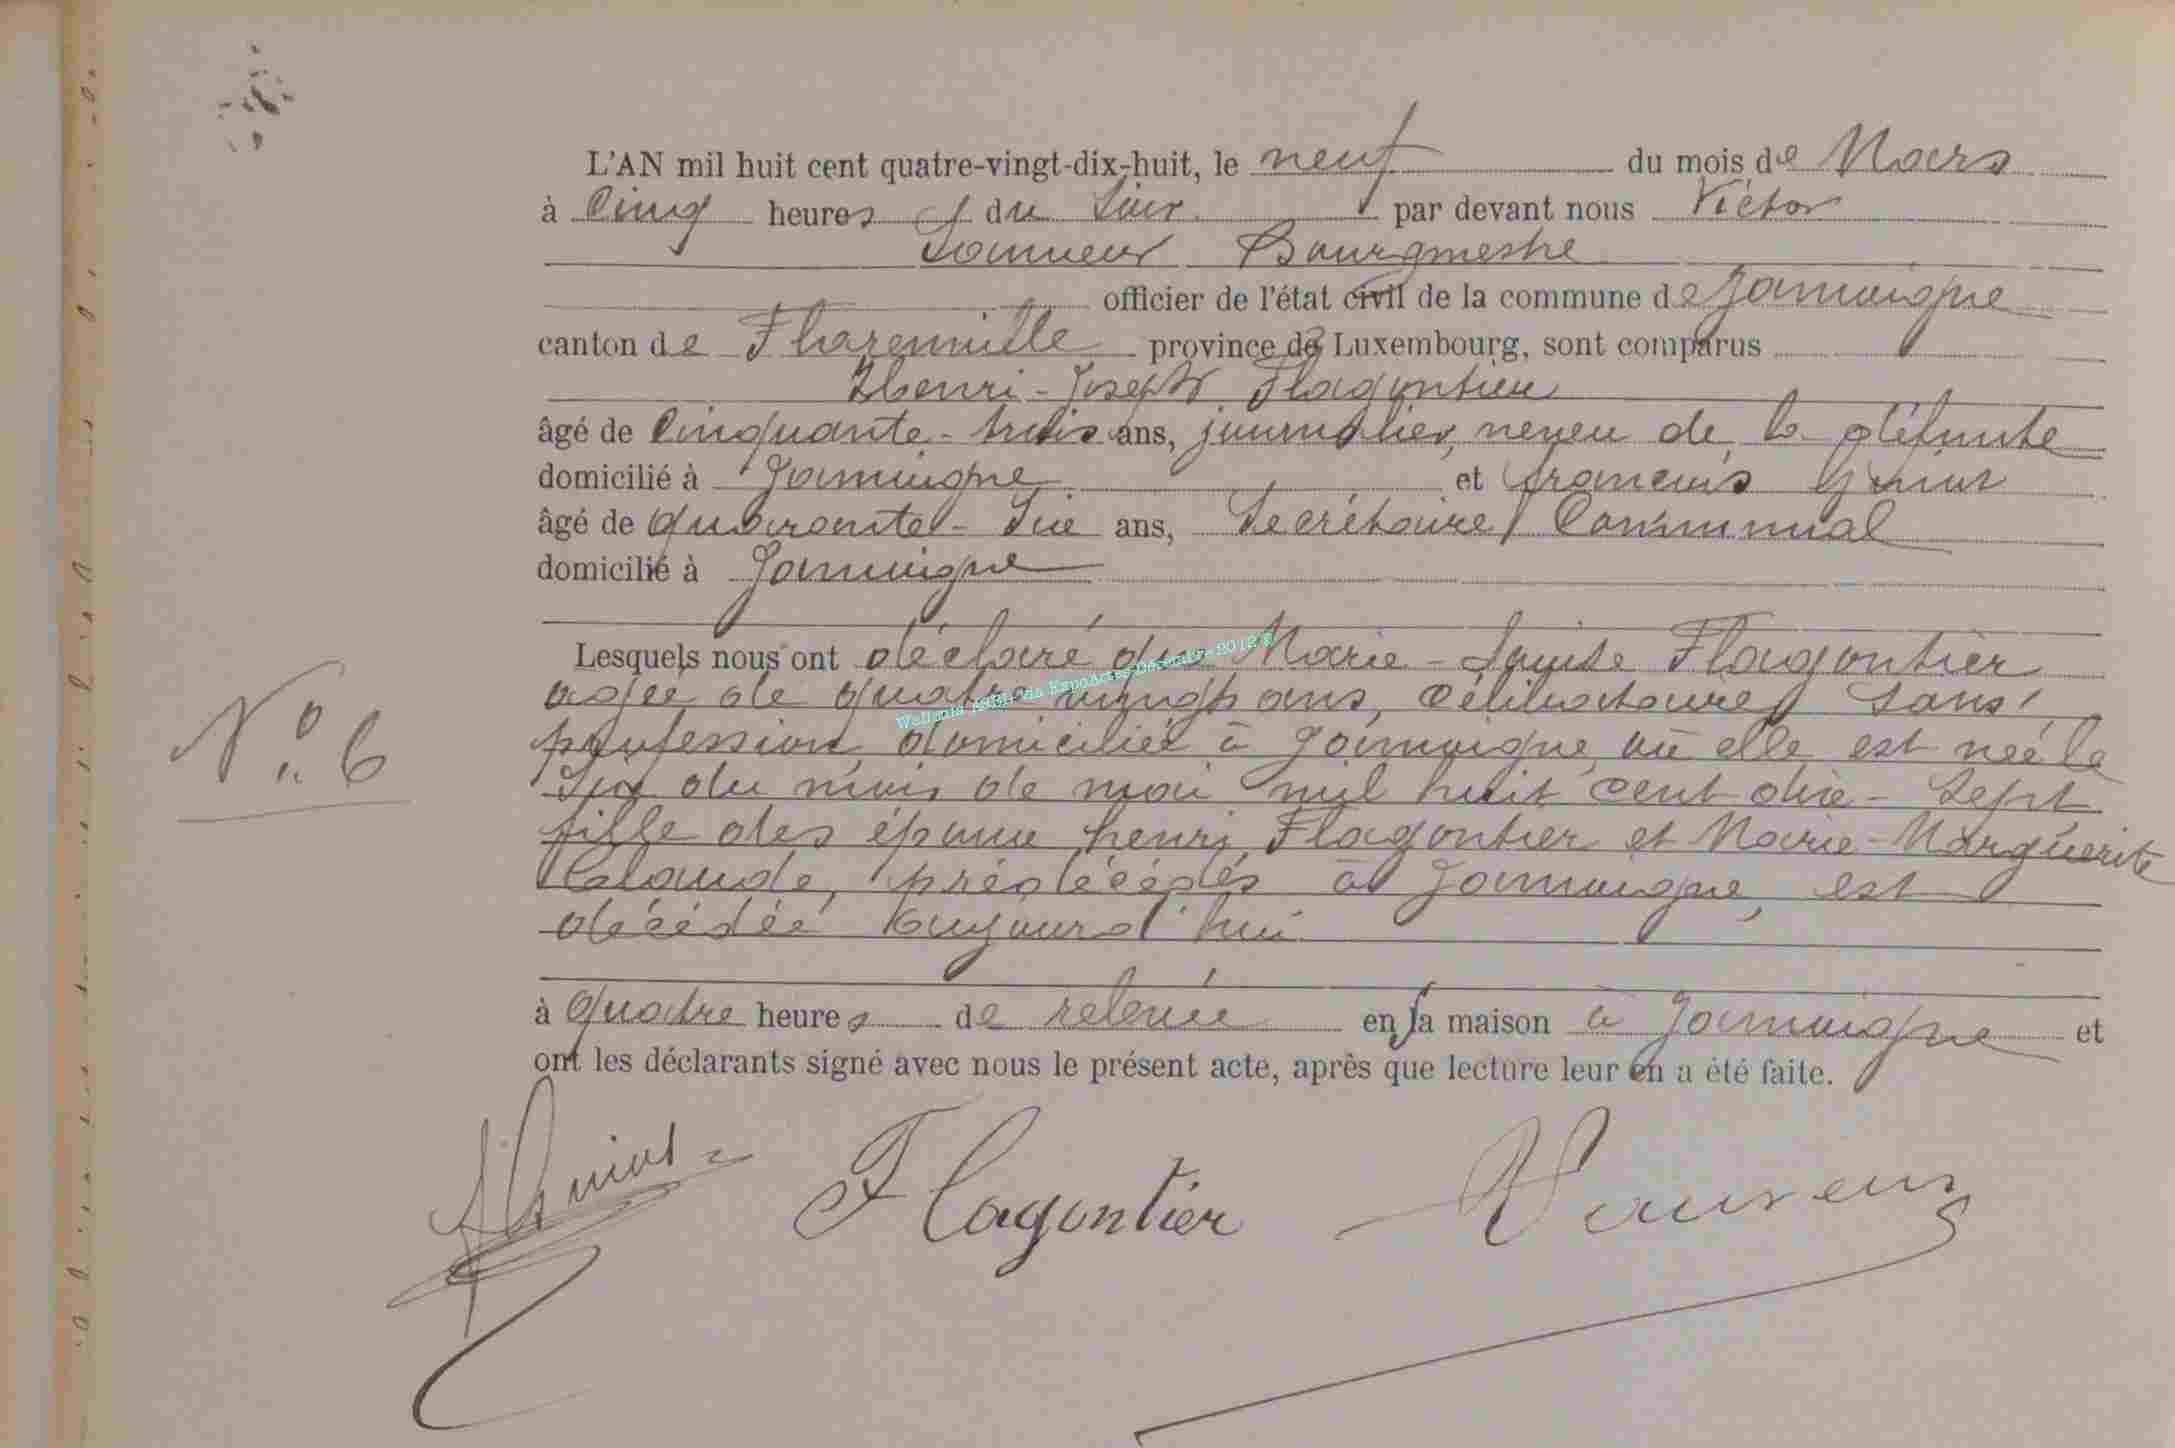 L'AN mil huit cent quatre-vingt-dix-huit, le neuf du mois de Mars
à Cinq heures du Soir par devant nous Victor
Bourgmestre
officier de l'état civil de la commune de Jamoigne
canton de Florenville province de Luxembourg, sont comparus
Henri-Joseph Flagontier
âgé de Cinquante-trois ans, journalier, neveu de la défunte
domicilié à Jamoigne et françois
âgé de quarante-Six ans, Secrétaire Communal
domicilié à Jamoigne
Lesquels nous ont déclaré que Marie-Louise Flagontier
agée de quatre vingt ans, Célibataire, Sans
profession, domiciliée à Jamoigne, où elle est née le
Six du mois de mai mil huit cent dix-Sept
fille des époux henri Flagontier et Marie-Marguerite
Claude, prédécédés à Jamoigne, est
décédée aujourd'hui
N° 6
à quatre heures de relevée en sa maison à Jamoigne et
ont les déclarants signé avec nous le présent acte, après que lecture leur en a été faite.
Flagontier